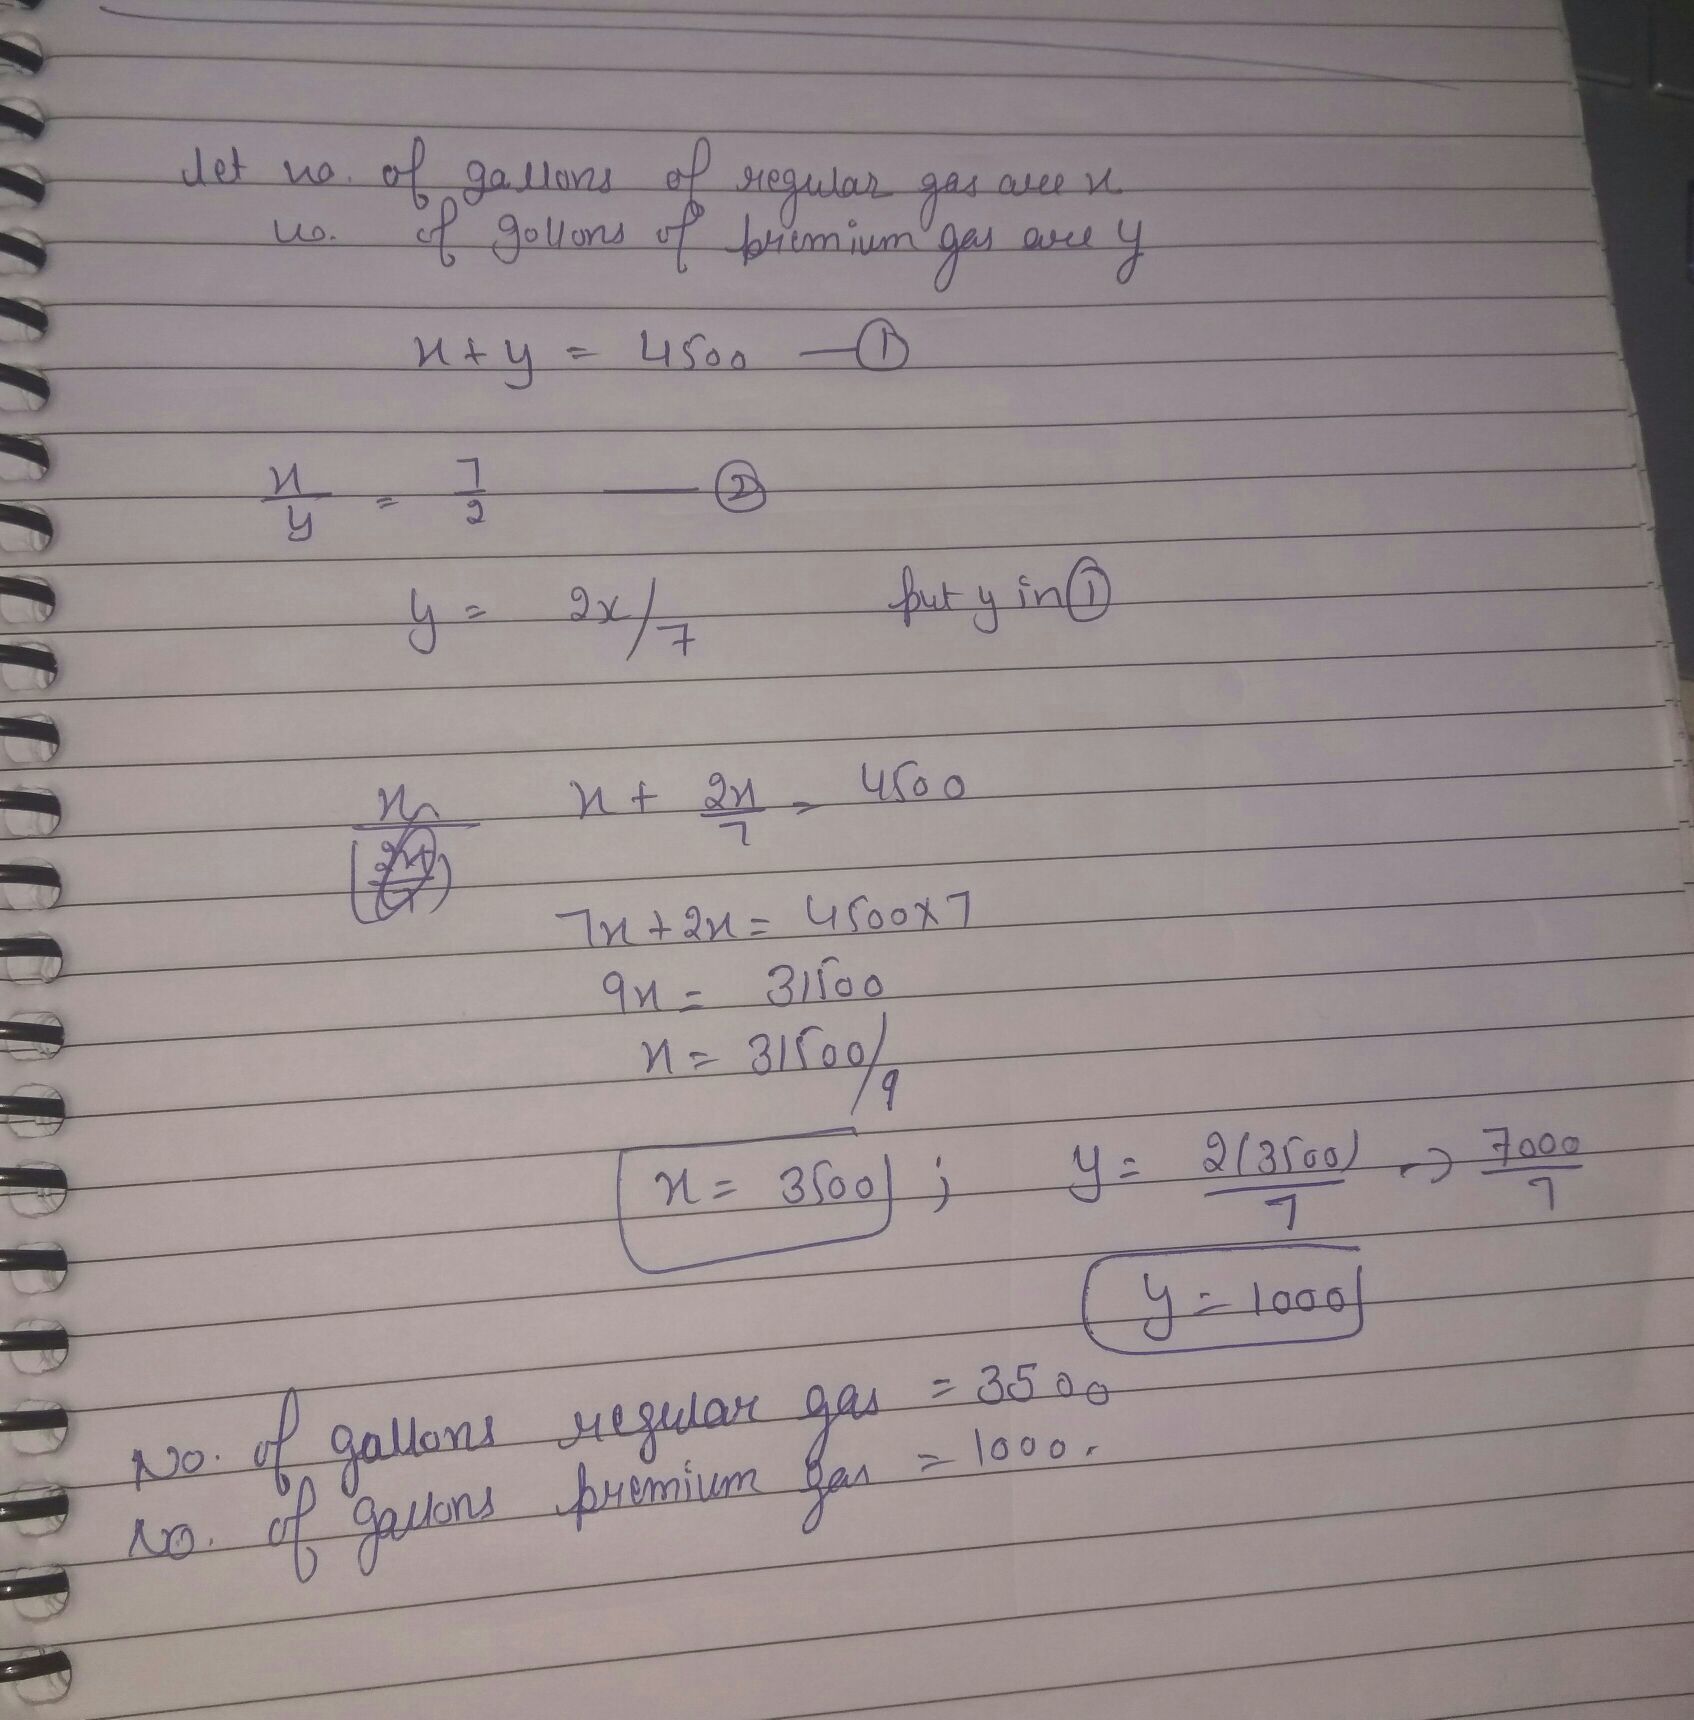 let no. of gallons of regular gas are x
no. of gallons of premium gas are y
x + y = 4500 — ①
x/y = 7/2 — ②
y = 2x/7 put y in ①
x + 2x/7 = 4500
7x + 2x = 4500 × 7
9x = 31500
x = 31500/9
x = 3500 ; y = 2(3500)/7 → 7000/7
y = 1000
No. of gallons regular gas = 3500
No. of gallons premium gas = 1000.